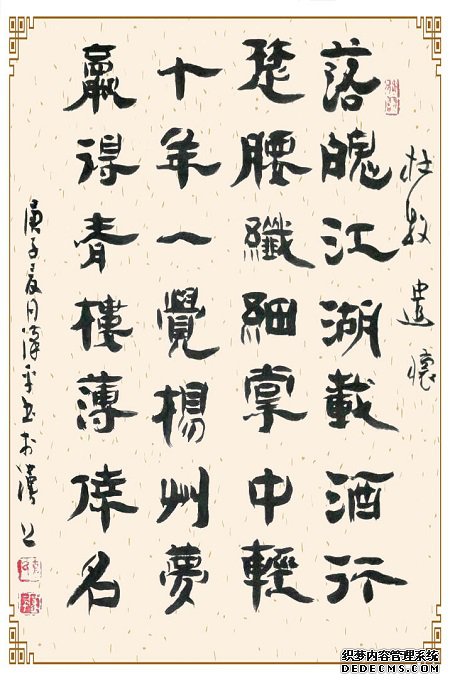 杜牧 遣懷
落魄江湖載酒行
楚腰纖細掌中輕
十年一覺楊州夢
贏得青樓薄倖名
庚子夏月漢平書於漢上
织梦内容管理系统
DEDECMS.COM